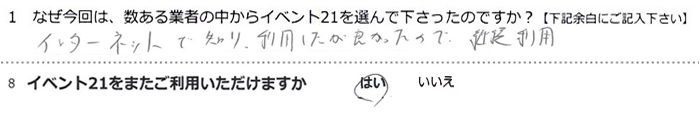 1 なぜ今回は、数ある業者の中からイベント21を選んで下さったのですか？【下記余白にご記入下さい】
インターネットで知り、利用したが良かったので、継続利用
8 イベント21をまたご利用いただけますか はい いいえ